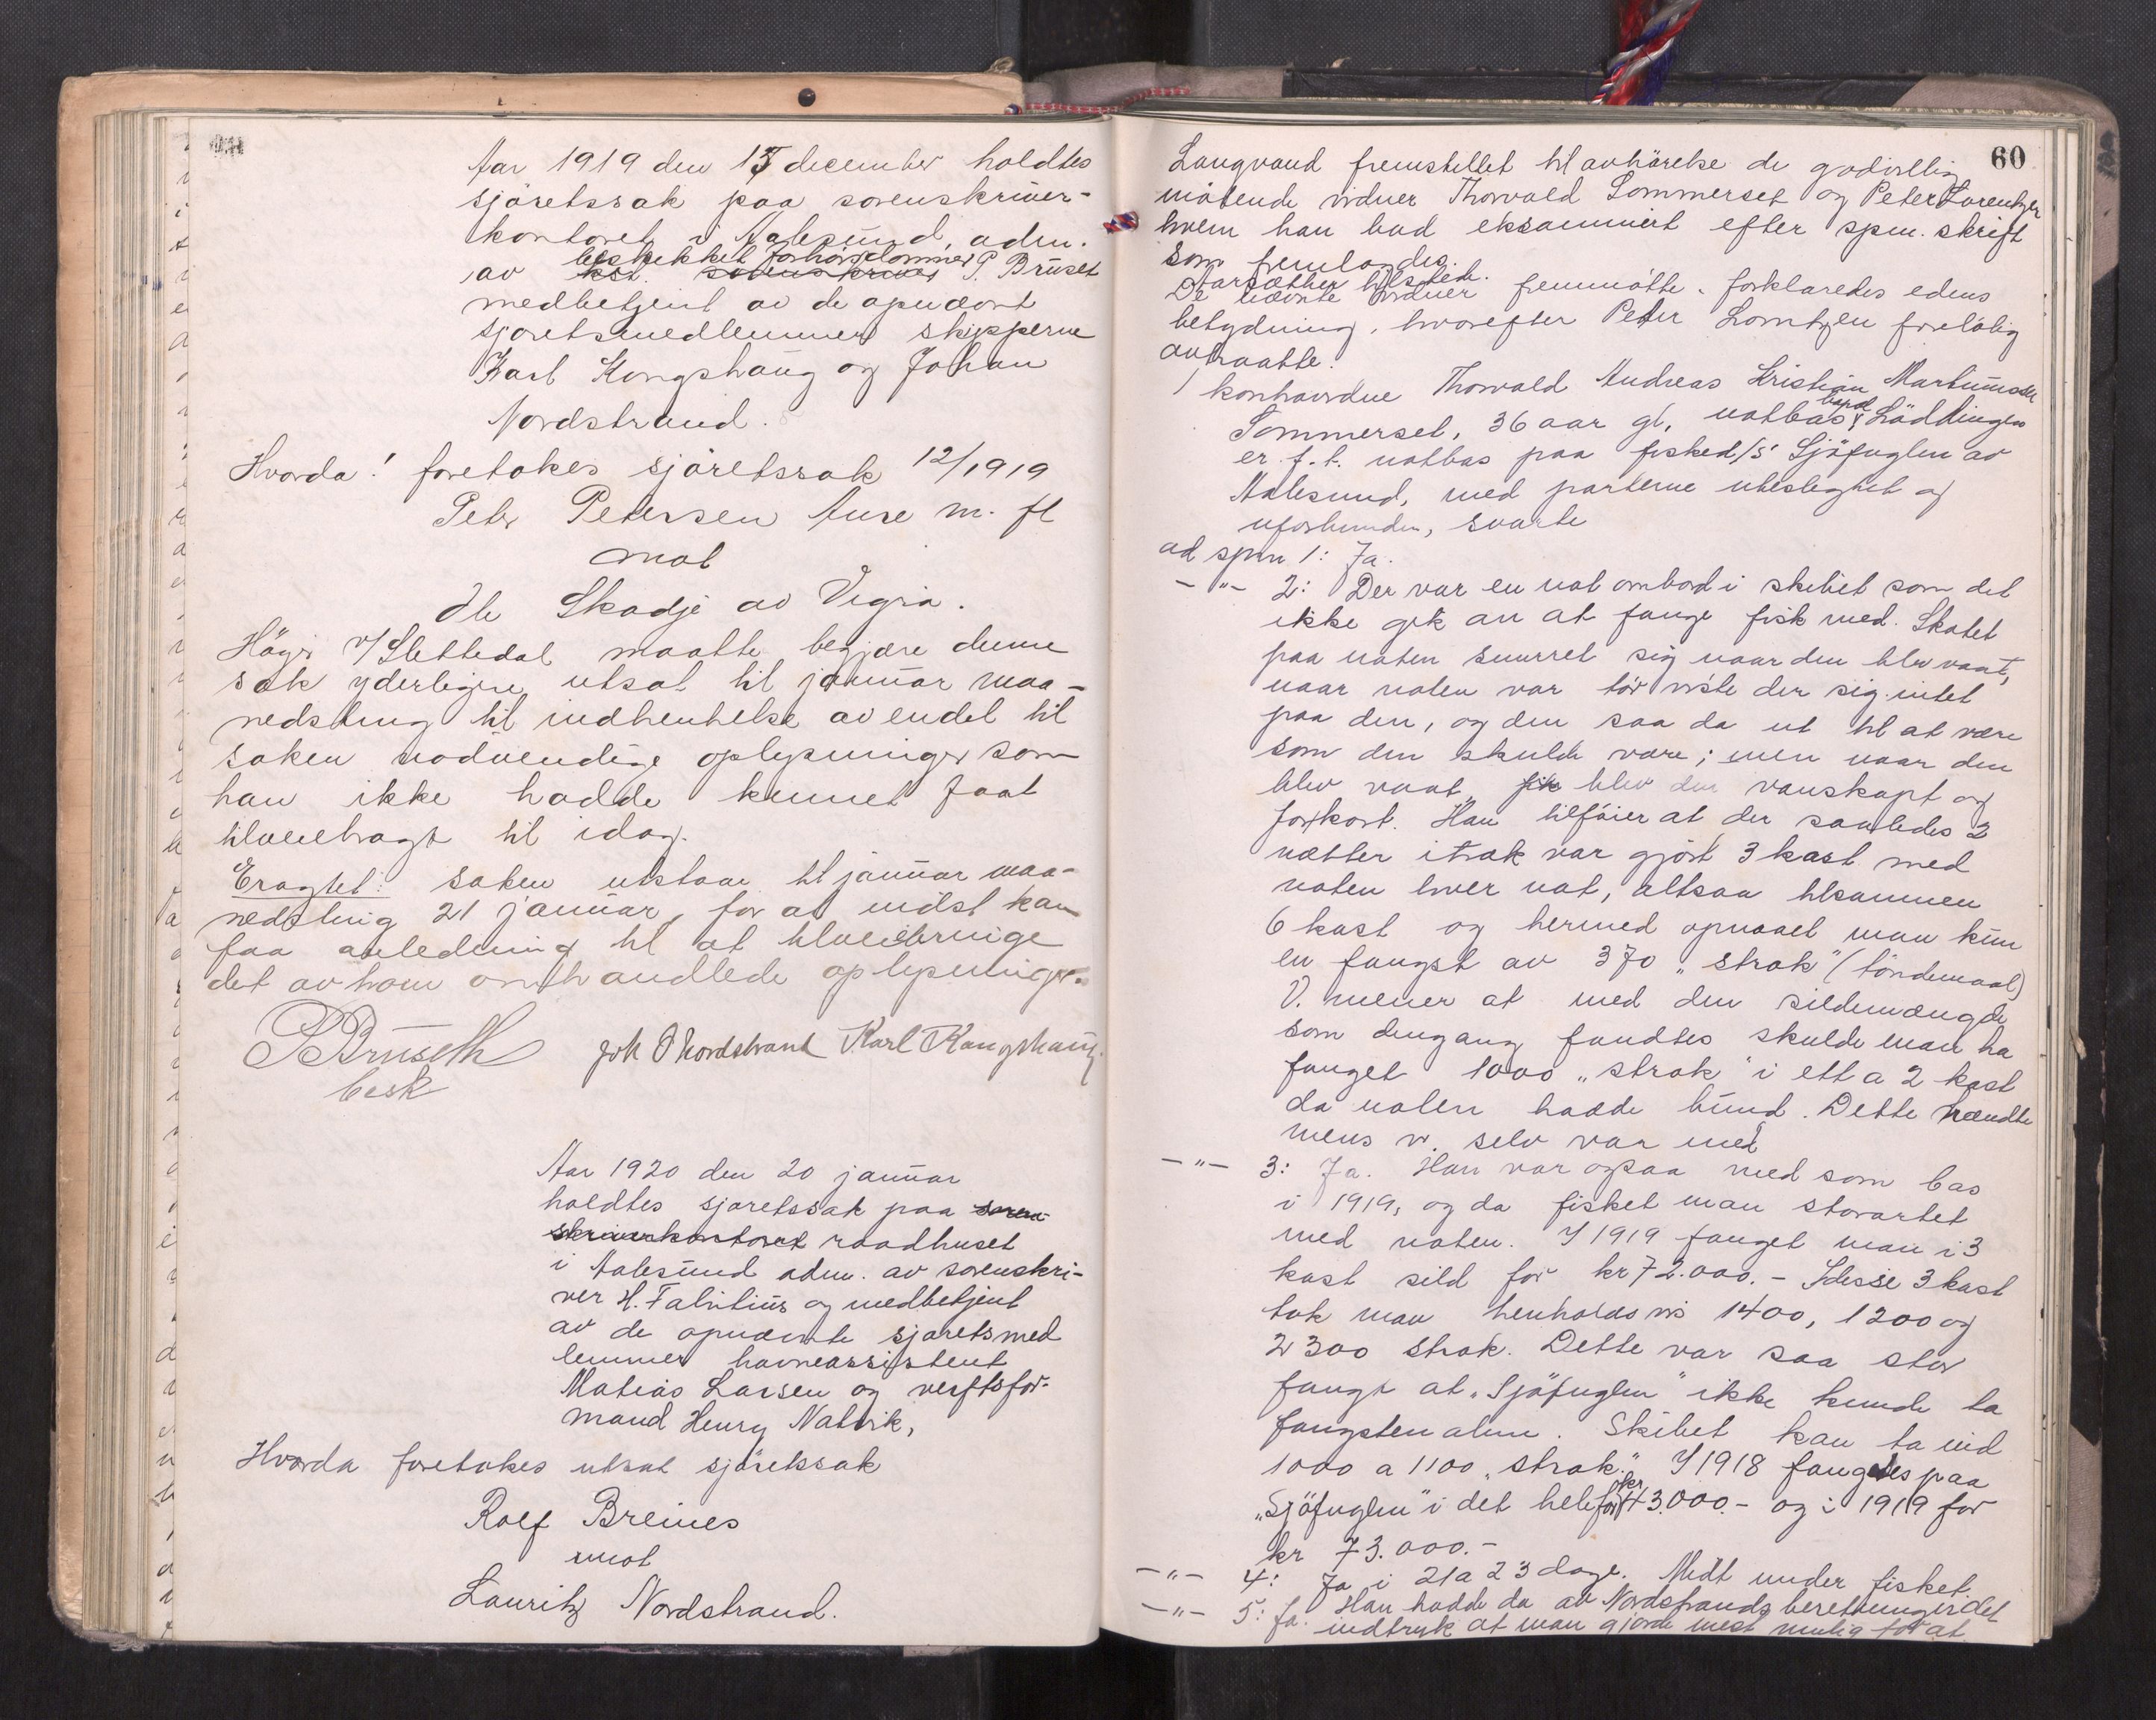 Aar 1919 den 15 december holdtes
sjöretssak paa sorenskriver-
kontoret i Aalesund, adm.
beskikket forhörsdommer
av kst. sorenskriver P. Brüset
medbetjent av de opnævnt
sjöretsmedlemmer skipperne
Karl Kongshaug og Johan
Nordstrand.
Hvorda! foretokes sjöretssak 12/1919
Peter Petersen Aure m. fl
mot
Ole Skodje av Vigra.
Höyr v/Slettedal maatte begjære denne
sak yderligere utsat til januar maa-
nedsting til indhentelse av endel til
saken nödvendige oplysninger som
han ikke hadde kunnet faat
tilveiebragt til idag.
Eragtet: saken utstaar til januar maa-
nedsting 21 januar, for at indst kan
faa anledning til at tilveiebringe
det av ham omhandlede oplysninger.
P Brüseth Joh O Nordstrand Karl Kongshaug
besk
Aar 1920 den 20 januar
holdtes sjöretssak paa soren-
skriverkontoret raadhuset
i Aalesund adm. av sorenskri-
ver H. Fabritius og medbetjent
av de opnævnte sjöretsmed
lemmer havneassistent
Matias Larsen og verftsfor-
mand Henry Natvik,
Hvorda foretokes utsat sjöretssak
Rolf Breines
mot
Lauritz Nordstrand.
60
Langvand fremstillet til avhörelse de godvillig
mötende vidner Thorvald Sommerset og Peter Lorentzen
hvem han bad eksaminert efter spm. skrift
som fremlagdes.
Starsæther tilstede.
De nævnte vidner fremmötte. forklaredes edens
betydning, hvorefter Peter Lorntzen forelöbig
avtraatte.
1 kontravidne Thorvald Andreas Kristian Martinussen
Sommerset, 36 aar gl, notbas, bopæl Lödingen
er f.t. notbas paa fisked/s Sjöfuglen av
Aalesund, med parterne ubeslegtet og
uforbunden, svarte
ad spm 1: Ja.
—"— 2: Der var en not ombord i skibet som det
ikke gik an at fange fisk med. Skotet
paa noten snurret sig naar den blev vaat,
naar noten var tör viste der sig intet
paa den, og den saa da ut til at være
som den skulde være; men naar den
blev vaat, fik blev den vanskapt og
forkort. Han tilföier at der saaledes 2
nætter itrak var gjört 3 kast med
noten hver nat, altsaa tilsammen
6 kast og hermed opnaaet man kun
en fangst av 370 „strok" (töndemaal)
V. mener at med den sildemængde
som dengang fandtes skulde man ha
fanget 1000 „strok" i ett a 2 kast
da noten hadde bund. Dette hændte
mens v. selv var med
—"— 3: Ja. Han var ogsaa med som bas
i 1919, og da fisket man storartet
med noten. I 1919 fanget man i 3
kast sild for kr 72.000.- I disse 3 kast
tok man henholdsvis 1400, 1200 og
2300 strok. Dette var saa stor
fangst at „Sjöfuglen" ikke kunde ta
fangsten alene. Skibet kan ta ind
1000 a 1100 „strok". I 1918 fangedes paa
„Sjöfuglen" i det hele for kr 43.000.- og i 1919 for
kr 73.000.-
—"— 4: Ja i 21 a 23 dage. Midt under fisket.
—"— 5: Ja. Han hadde da av Nordstrands beretninger det
indtryk at man gjorde mest mulig for at